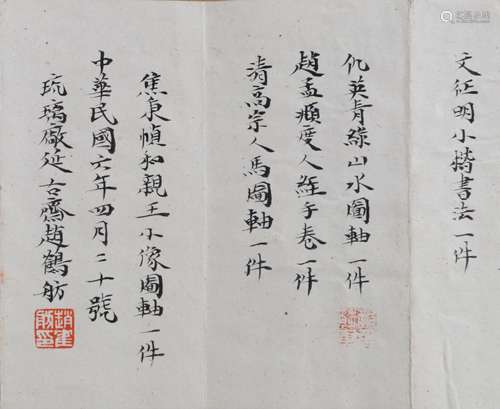 文征明小楷書法一件
仇英青綠山水圖軸一件
趙孟頫度人經手卷一件
清高宗人馬圖軸一件
焦秉幀和親王小像圖軸一件
中華民國六年四月二十號
琉璃廠延古齋趙鶴舫